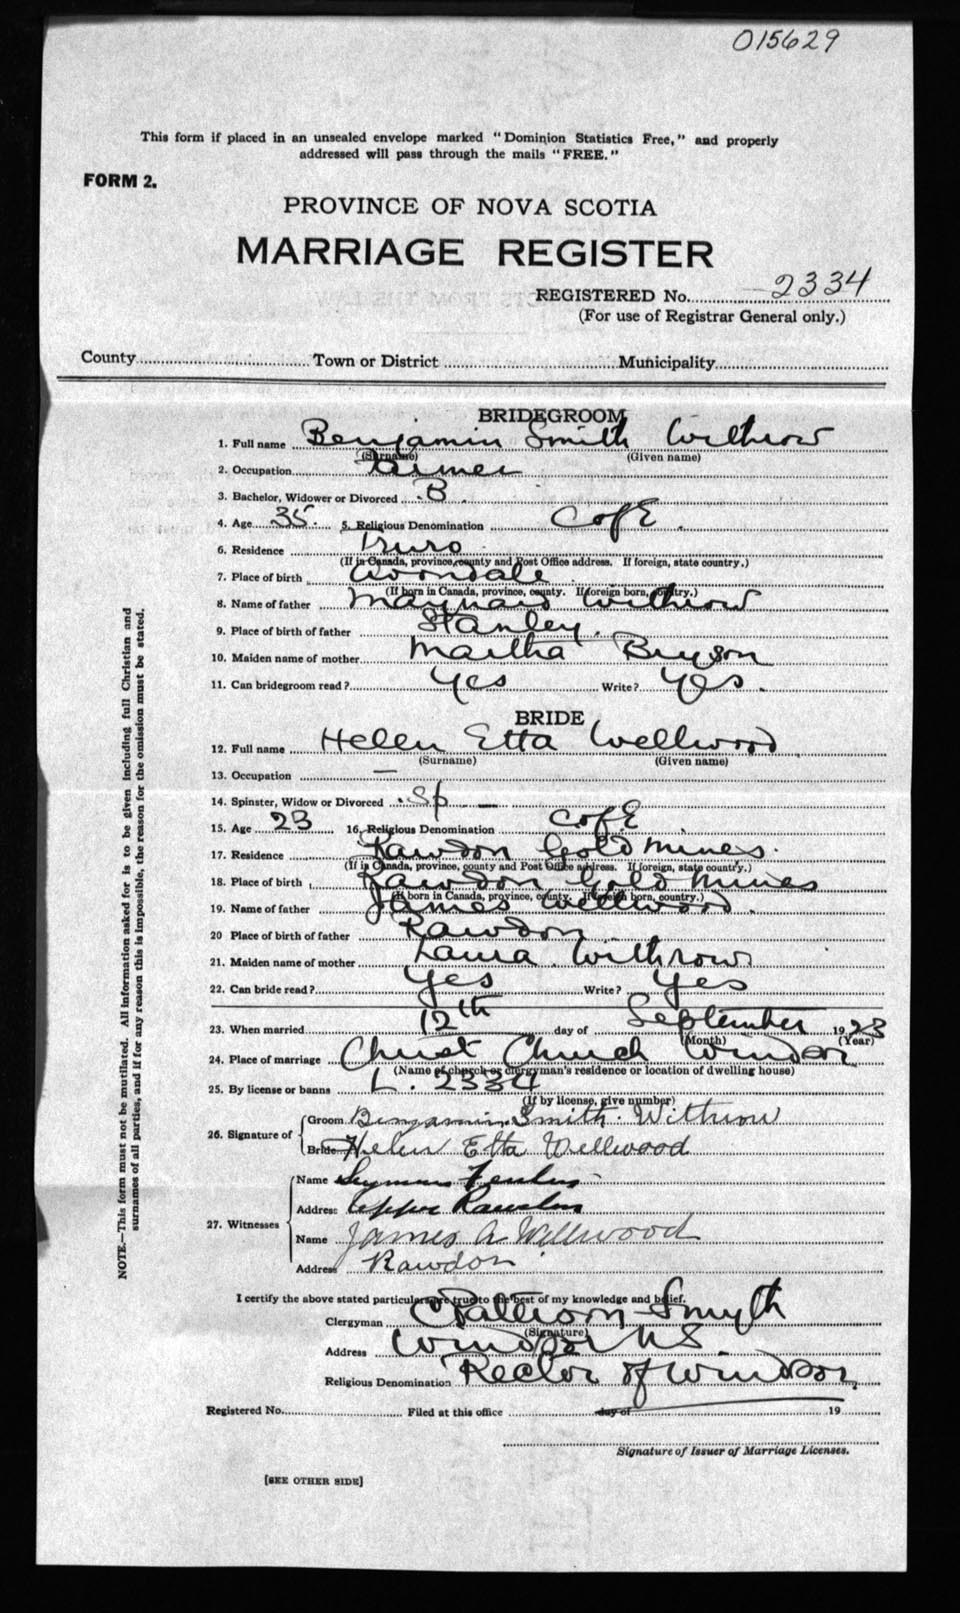 015629
This form if placed in an unsealed envelope marked "Dominion Statistics Free," and properly
addressed will pass through the mails "FREE."
FORM 2.
PROVINCE OF NOVA SCOTIA
MARRIAGE REGISTER
REGISTERED No. 2334
(For use of Registrar General only.)
County Town or District Municipality
BRIDEGROOM
1. Full name Benjamin Smith Withrow
(Surname) (Given name)
2. Occupation
3. Bachelor, Widower or Divorced B.
4. Age 35. 5. Religious Denomination C of E.
6. Residence Truro
(If in Canada, province, county and Post Office address. If foreign, state country.)
7. Place of birth Avondale
(If born in Canada, province, county. If foreign born, country.)
8. Name of father Maynard Withrow
9. Place of birth of father Stanley.
10. Maiden name of mother Martha Bryson
11. Can bridegroom read? Yes Write? Yes.
BRIDE
12. Full name Helen Etta Wellwood
(Surname) (Given name)
13. Occupation —
14. Spinster, Widow or Divorced Sp —
15. Age 23 16. Religious Denomination C of E
17. Residence Rawdon Gold Mines.
(If in Canada, province, county and Post Office address. If foreign, state country.)
18. Place of birth Rawdon Gold Mines
(If born in Canada, province, county. If foreign born, country.)
19. Name of father James Wellwood.
20 Place of birth of father Rawdon
21. Maiden name of mother Laura Withrow
22. Can bride read? Yes Write? Yes
23. When married 12th day of September 1923
(Month) (Year)
24. Place of marriage Christ Church Windsor
(Name of church or clergyman's residence or location of dwelling house)
25. By license or banns L. 2334
(If by license, give number)
26. Signature of Groom Benjamin Smith Withrow
Bride Helen Etta Wellwood
27. Witnesses
Name Seymour
Address Upper Rawdon
Name James A Wellwood
Address Rawdon
I certify the above stated particulars are true to the best of my knowledge and belief.
Clergyman Smyth
(Signature)
Address Windsor N.S.
Religious Denomination Rector of Windsor.
Registered No. Filed at this office day of 19
Signature of Issuer of Marriage Licenses.
[SEE OTHER SIDE]
NOTE.—This form must not be mutilated. All information asked for is to be given including full Christian and
surnames of all parties, and if for any reason this is impossible, the reason for the omission must be stated.